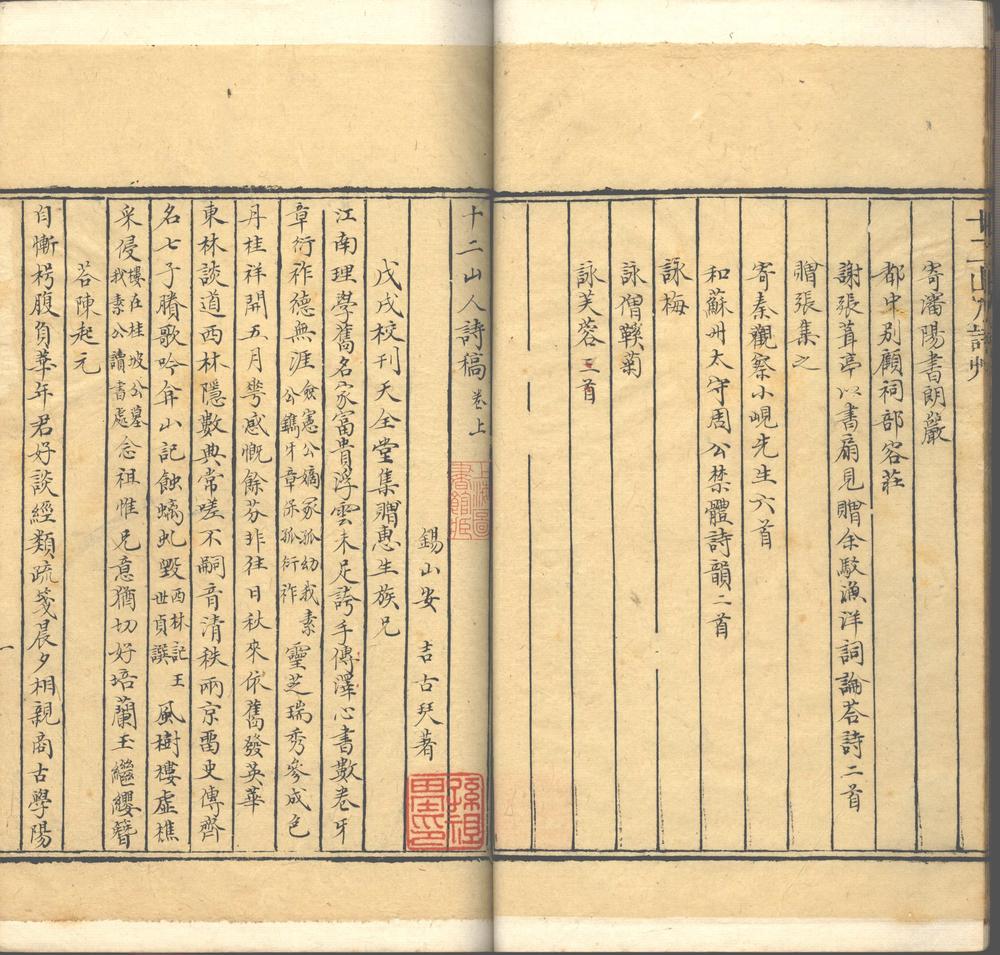 寄瀋陽書朗巖
都中别顧祠部容莊
謝張葺亭以書扇見贈余駁漁洋詞論荅詩二首
贈張集之
寄秦觀察小峴先生六首
和蘇州太守周公禁體詩韻二首
詠梅
詠僧鞵菊
詠芙蓉三首
十二山人詩稿 卷上
錫山安 吉古琹著
戊戌校刊天全堂集贈惠生族兄
江南理學舊名家富貴浮雲未足誇手傳澤心書數卷牙
章衍祚德無涯僉憲公嫡冢孤幼我素公鐫牙章承孤衍祚靈芝瑞秀參成色
丹桂祥開五月蕚感慨餘芬非往日秋來依舊發英華
東林談道西林隱數典常嗟不嗣音清秩兩京畱史傳齊
名七子賸歌吟弇山記蝕螭虬毀西林記王世貞譔風樹樓虛樵
采侵樓在桂坡公墓我素公讀書處念祖惟兄意猶切好培蘭玉繼纓簪
荅陳起元
自慚枵腹負華年君好談經類疏箋晨夕相親商古學陽
一